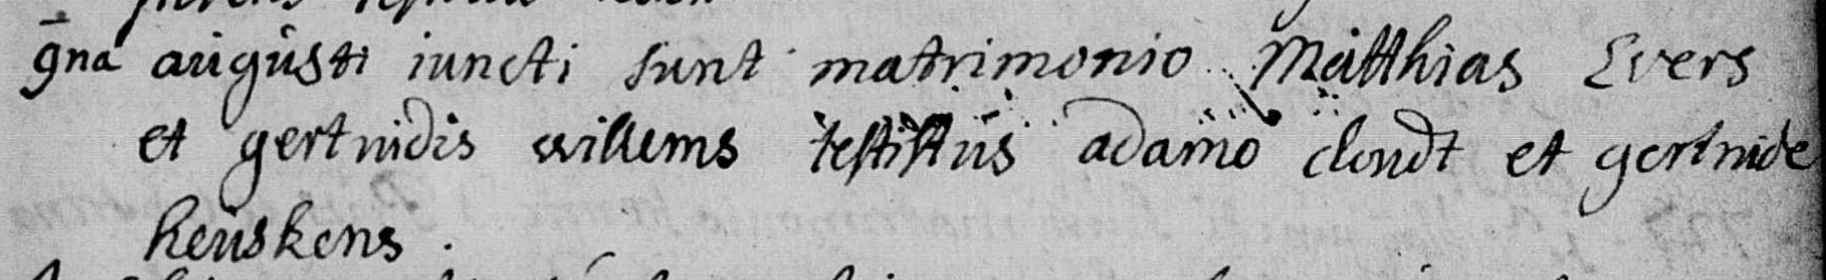 9na augusti iuncti sunt matrimonio Matthias Evers
et gertrudis willems testibus adamo cloudt et gertrude
heuskens.